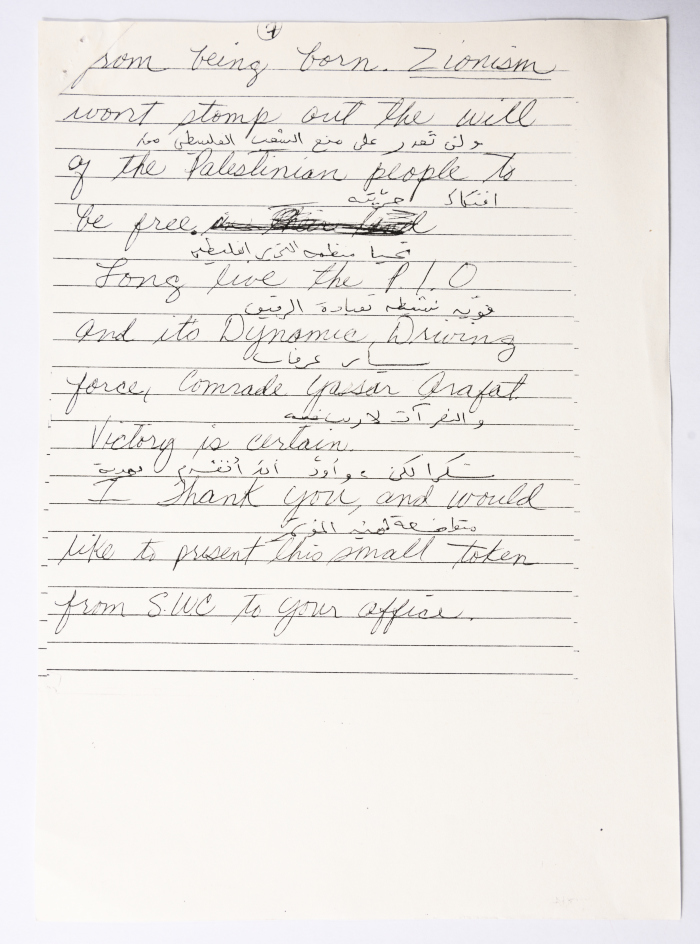 7
from being born. Zionism
wont stomp out the will
ولن تقدر على منع الشعب الفلسطيني من
of the Palestinian people to
افتكاك حريته
be free.
تحيا منظمة التحرير الفلسطينية
Long live the P.L.O
قوية نشطة بقيادة الرفيق
and its Dynamic, Driving
ياسر عرفات
force, Comrade Yassar Arafat.
والنصر آت لا ريب فيه
Victory is certain.
شكرا لكن وأود أن أتقدم بهدية
I Thank you, and would
متواضعة
like to present this small token
from S.WC to your office.